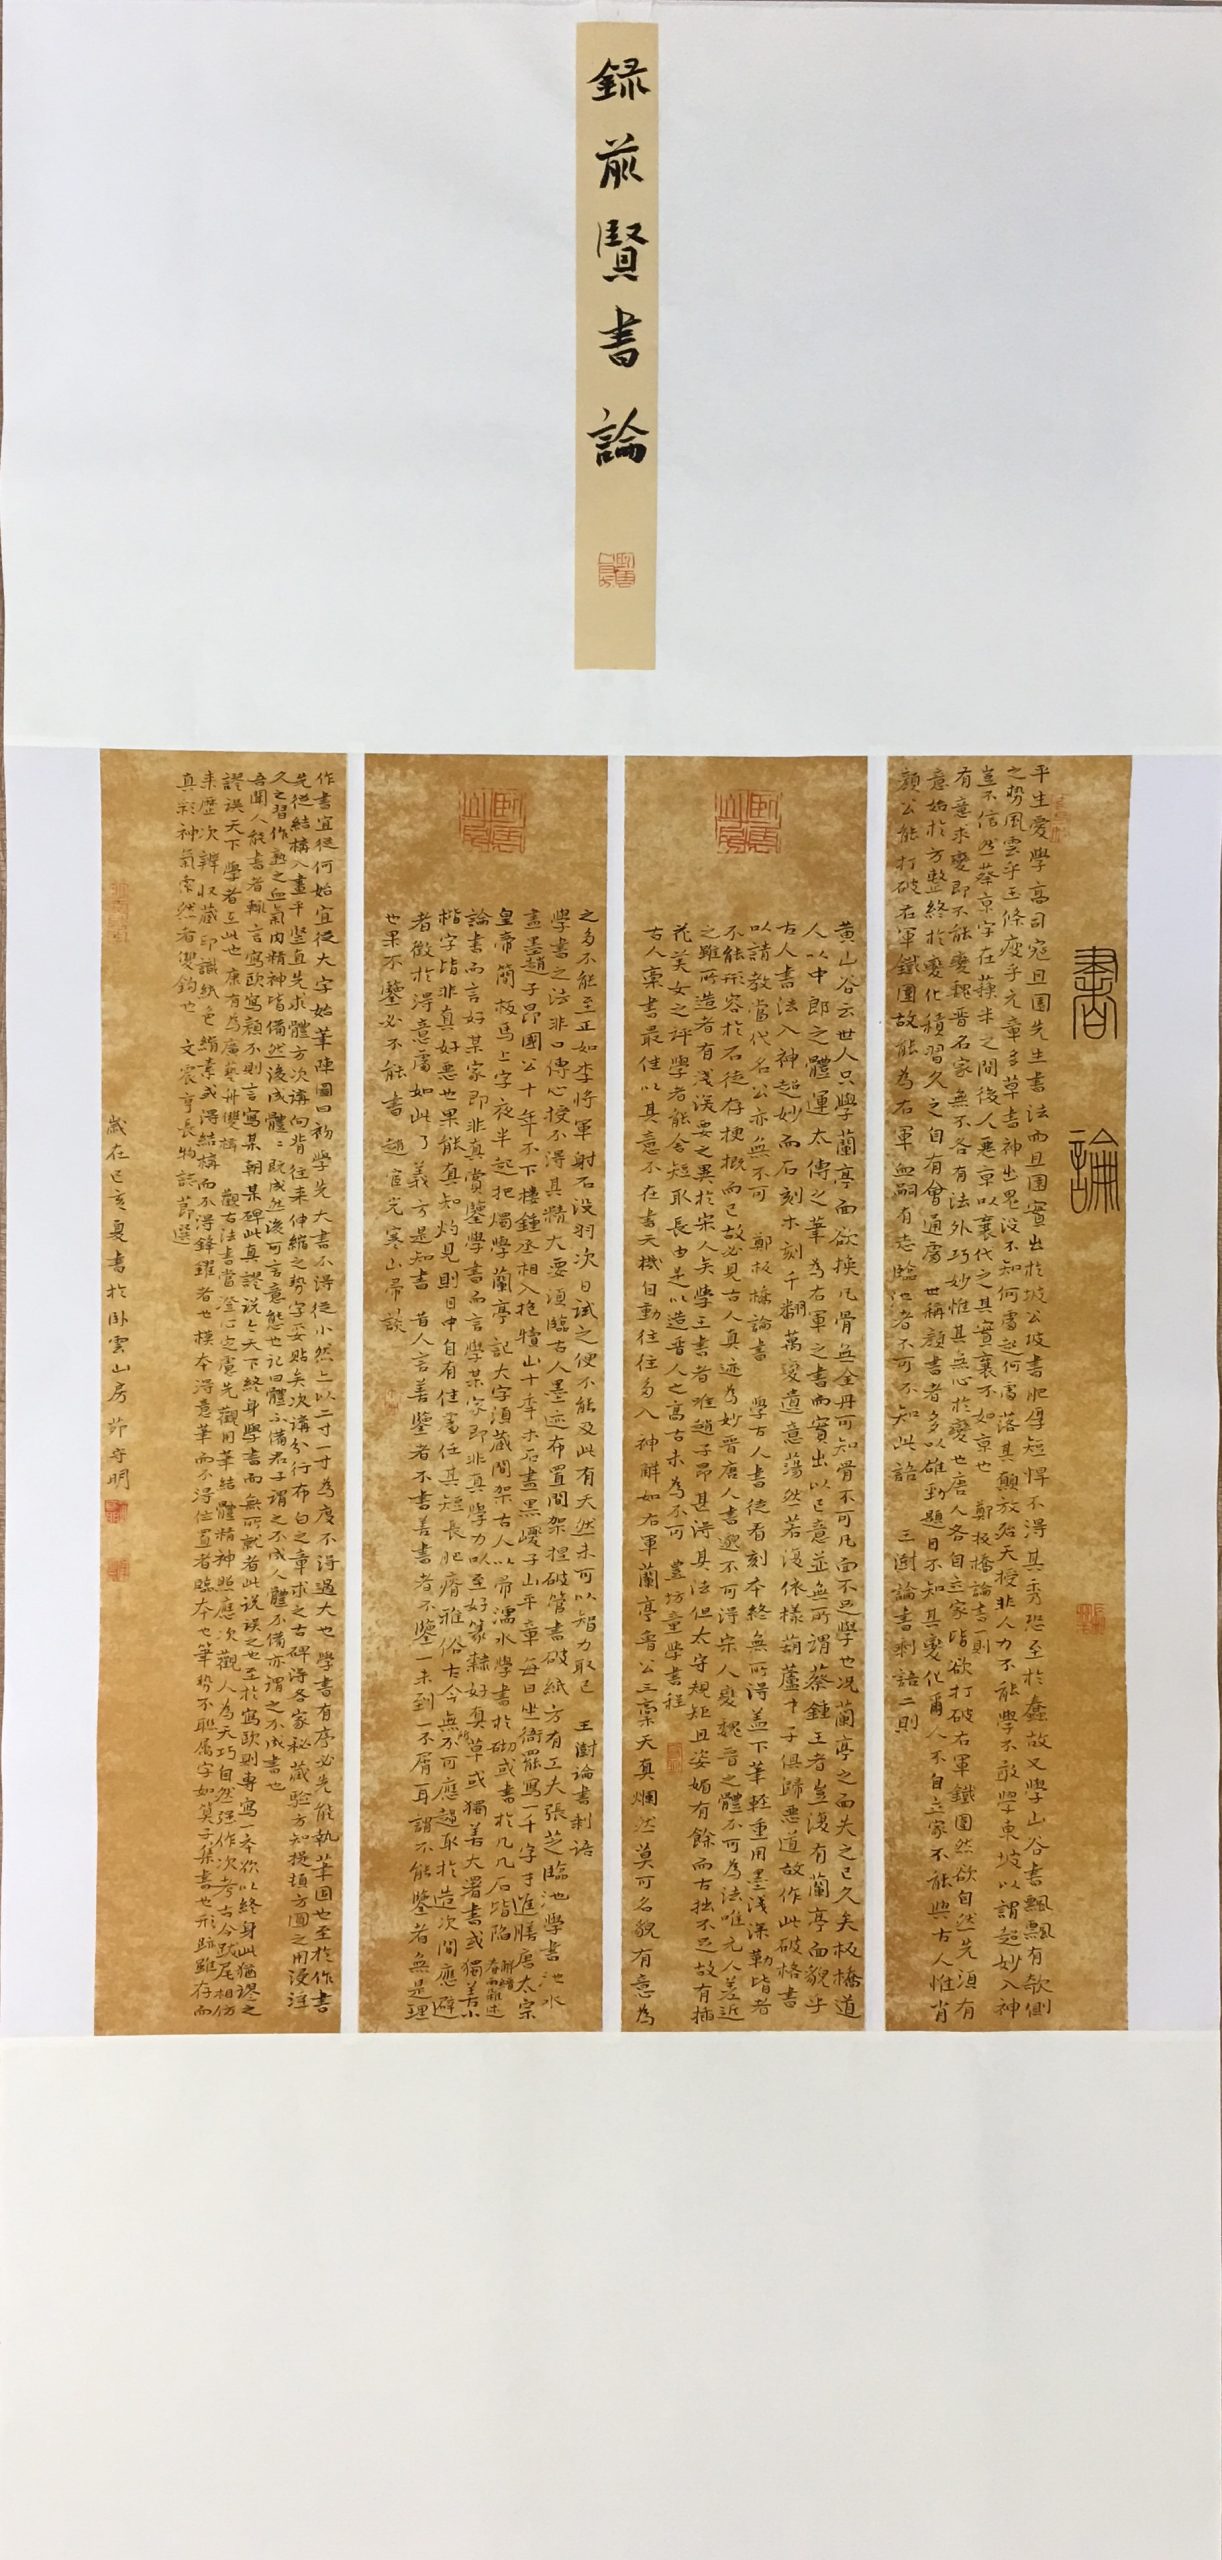 録前賢書論
書論
平生愛學高司寇且園先生書法而且園實出於坡公坡書肥厚短悍不得其秀恐至於蠢故又學山谷書飄飄有欹側
之勢風雲乎玉條瘦乎元章多草書神出鬼沒不知何處起何處落其顛放殆天授非人力不能學不敢學東坡以謂超妙入神
豈不信然蔡京字在蘇米之間後人惡京以襄代之其實襄不如京也 鄭板橋論書一則
有意求變即不能變魏晉名家無不各有法外巧妙惟其無心於變也唐人各自立家皆欲打破右軍鐵圍然欲自然先須有
意始於方整終於變化積習久之自有會通處 世稱顏書者多以雄勁題目不知其變化爾人不自立家不能與古人惟肖
顏公能打破右軍鐵圍故能為右軍血嗣有志臨池者不可不知此語 王澍論書剩語二則
黃山谷云世人只學蘭亭面欲換凡骨無金丹可知骨不可凡面不足學也況蘭亭之面失之已久矣板橋道
人以中郎之體運太傅之筆為右軍之書而實出以己意並無所謂蔡鍾王者豈復有蘭亭面貌乎
古人書法入神超妙而石刻木刻千翻萬變遺意蕩然若復依樣葫蘆才子俱歸惡道故作此破格書
以請教當代名公亦無不可 鄭板橋論書 學古人書徒看刻本終無所得蓋下筆輕重用墨淺深勒皆者
不能形容於石徒存梗概而已故必見古人真迹為妙晉唐人書邈不可得宋人變魏晉之體不可為法唯元人差近
之雖所造者有淺深要之異於宋人矣學王書者唯趙子昂甚得其法但太守規矩且姿媚有餘而古拙不足故有插
花美女之評學者能舍短取長由是以造晉人之高古未為不可 豐坊童學書程
古人稾書最佳以其意不在書天機自動往往多入神解如右軍蘭亭魯公三稾天真爛然莫可名貌有意為
之多不能至正如李將軍射石沒羽次日試之便不能及此有天然未可以智力取已 王澍論書剩語
學書之法非口傳心授不得其精大要須臨古人墨迹布置間架捏破管書破紙方有工夫張芝臨池學書池水
盡墨趙子昂國公十年不下樓鍾丞相入抱犢山十年木石盡黑巙子山平章每日坐衙罷寫一千字才進膳唐太宗
皇帝簡板馬上字夜半起把燭學蘭亭記大字須藏間架古人以帚濡水學書於砌或書於几几石皆陷
論書而言好某家即非真賞鑒學書而言學某家即非真學力以至好篆隸好真草或獨善大署書或獨善小
楷字皆非真好惡也果能真知灼見則目中自有住處任其短長肥瘠雅俗古今無不可應趨取於造次間應避
者徹於得意處如此了義方是知書 昔人言善鑒者不書善書者不鑒一未到一不屑耳謂不能鑒者無是理
也果不鑒必不能書 趙宧光寒山帚談
作書宜從何始宜從大字始筆陣圖曰初學先大書不得從小然亡以二寸一寸為度不得過大也 學書有序必先能執筆固也至於作書
先從結構入畫平豎直先求體方次講向背往來伸縮之勢字妥貼矣次講分行布白之章求之古碑得各家秘藏驗方知提頓方圓之用浸淫
久之習作熟之血氣肉精神皆備然後成體二既成然後可言意態也記曰體不備君子謂之不成人體不備亦謂之不成書也
吾聞人能書者輒言寫歐寫顏不則言寫某朝某碑此真謬說令天下終身學書而無所就者此說誤之也至於寫歐則專寫一本欲以終身此猶謬之
謬誤天下學者至此也 康有為廣藝舟雙楫 觀古法書當澄心定慮先觀用筆結體精神照應次觀人為天巧自然强作次考古今跋尾相仿
來歷次辨收藏印識紙色絹素或得結構而不得鋒鋩者也模本得意筆而不得位置者臨本也筆勢不聯屬字如算子集書也形跡雖存而
真彩神氣索然者雙鈎也 文震亨長物誌節選
歲在己亥夏書於卧雲山房 節守明